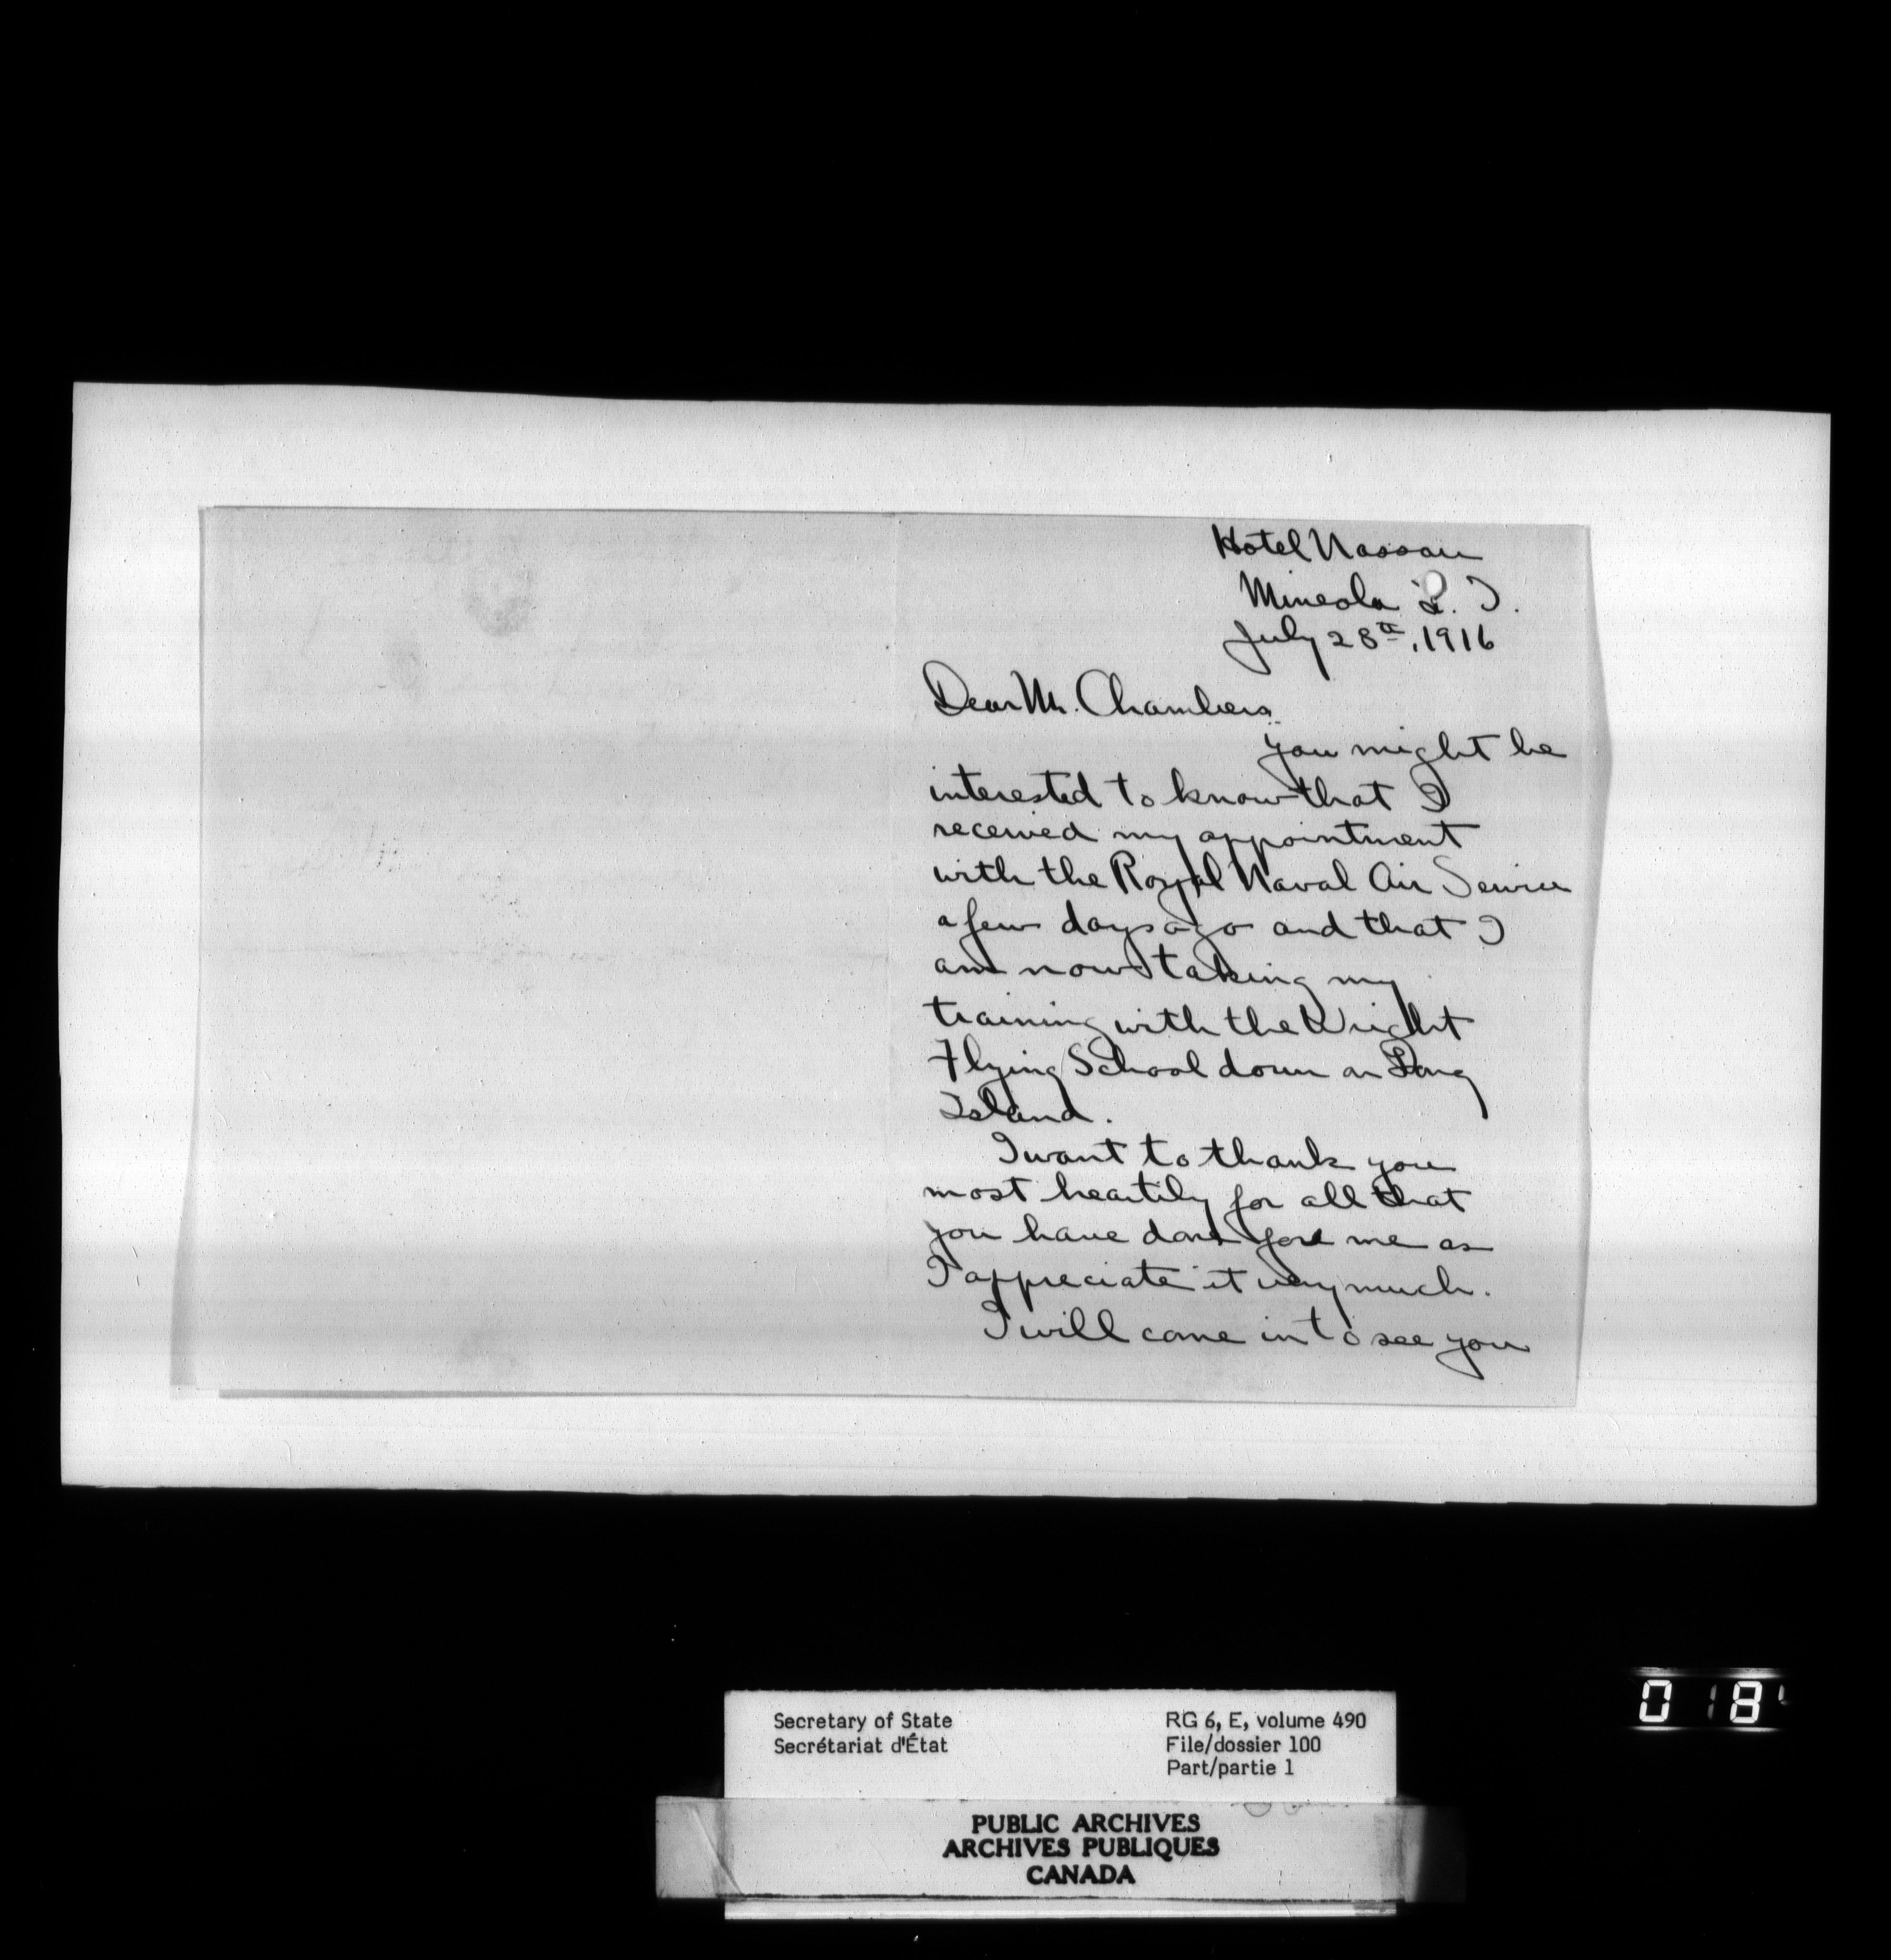 Hotel Nassau
Mineola L. I.
July 28th, 1916
Dear Mr. Chambers,
you might be
interested to know that I
received my appointment
with the Royal Naval Air Service
a few days ago and that I
am now taking my
training with the Wright
Flying School down on Long
Island.
I want to thank you
most heartily for all that
you have done for me as
I appreciate it very much.
I will come in to see you
0 18
Secretary of State
Secrétariat d'État
RG 6, E, volume 490
File/dossier 100
Part/partie 1
PUBLIC ARCHIVES
ARCHIVES PUBLIQUES
CANADA